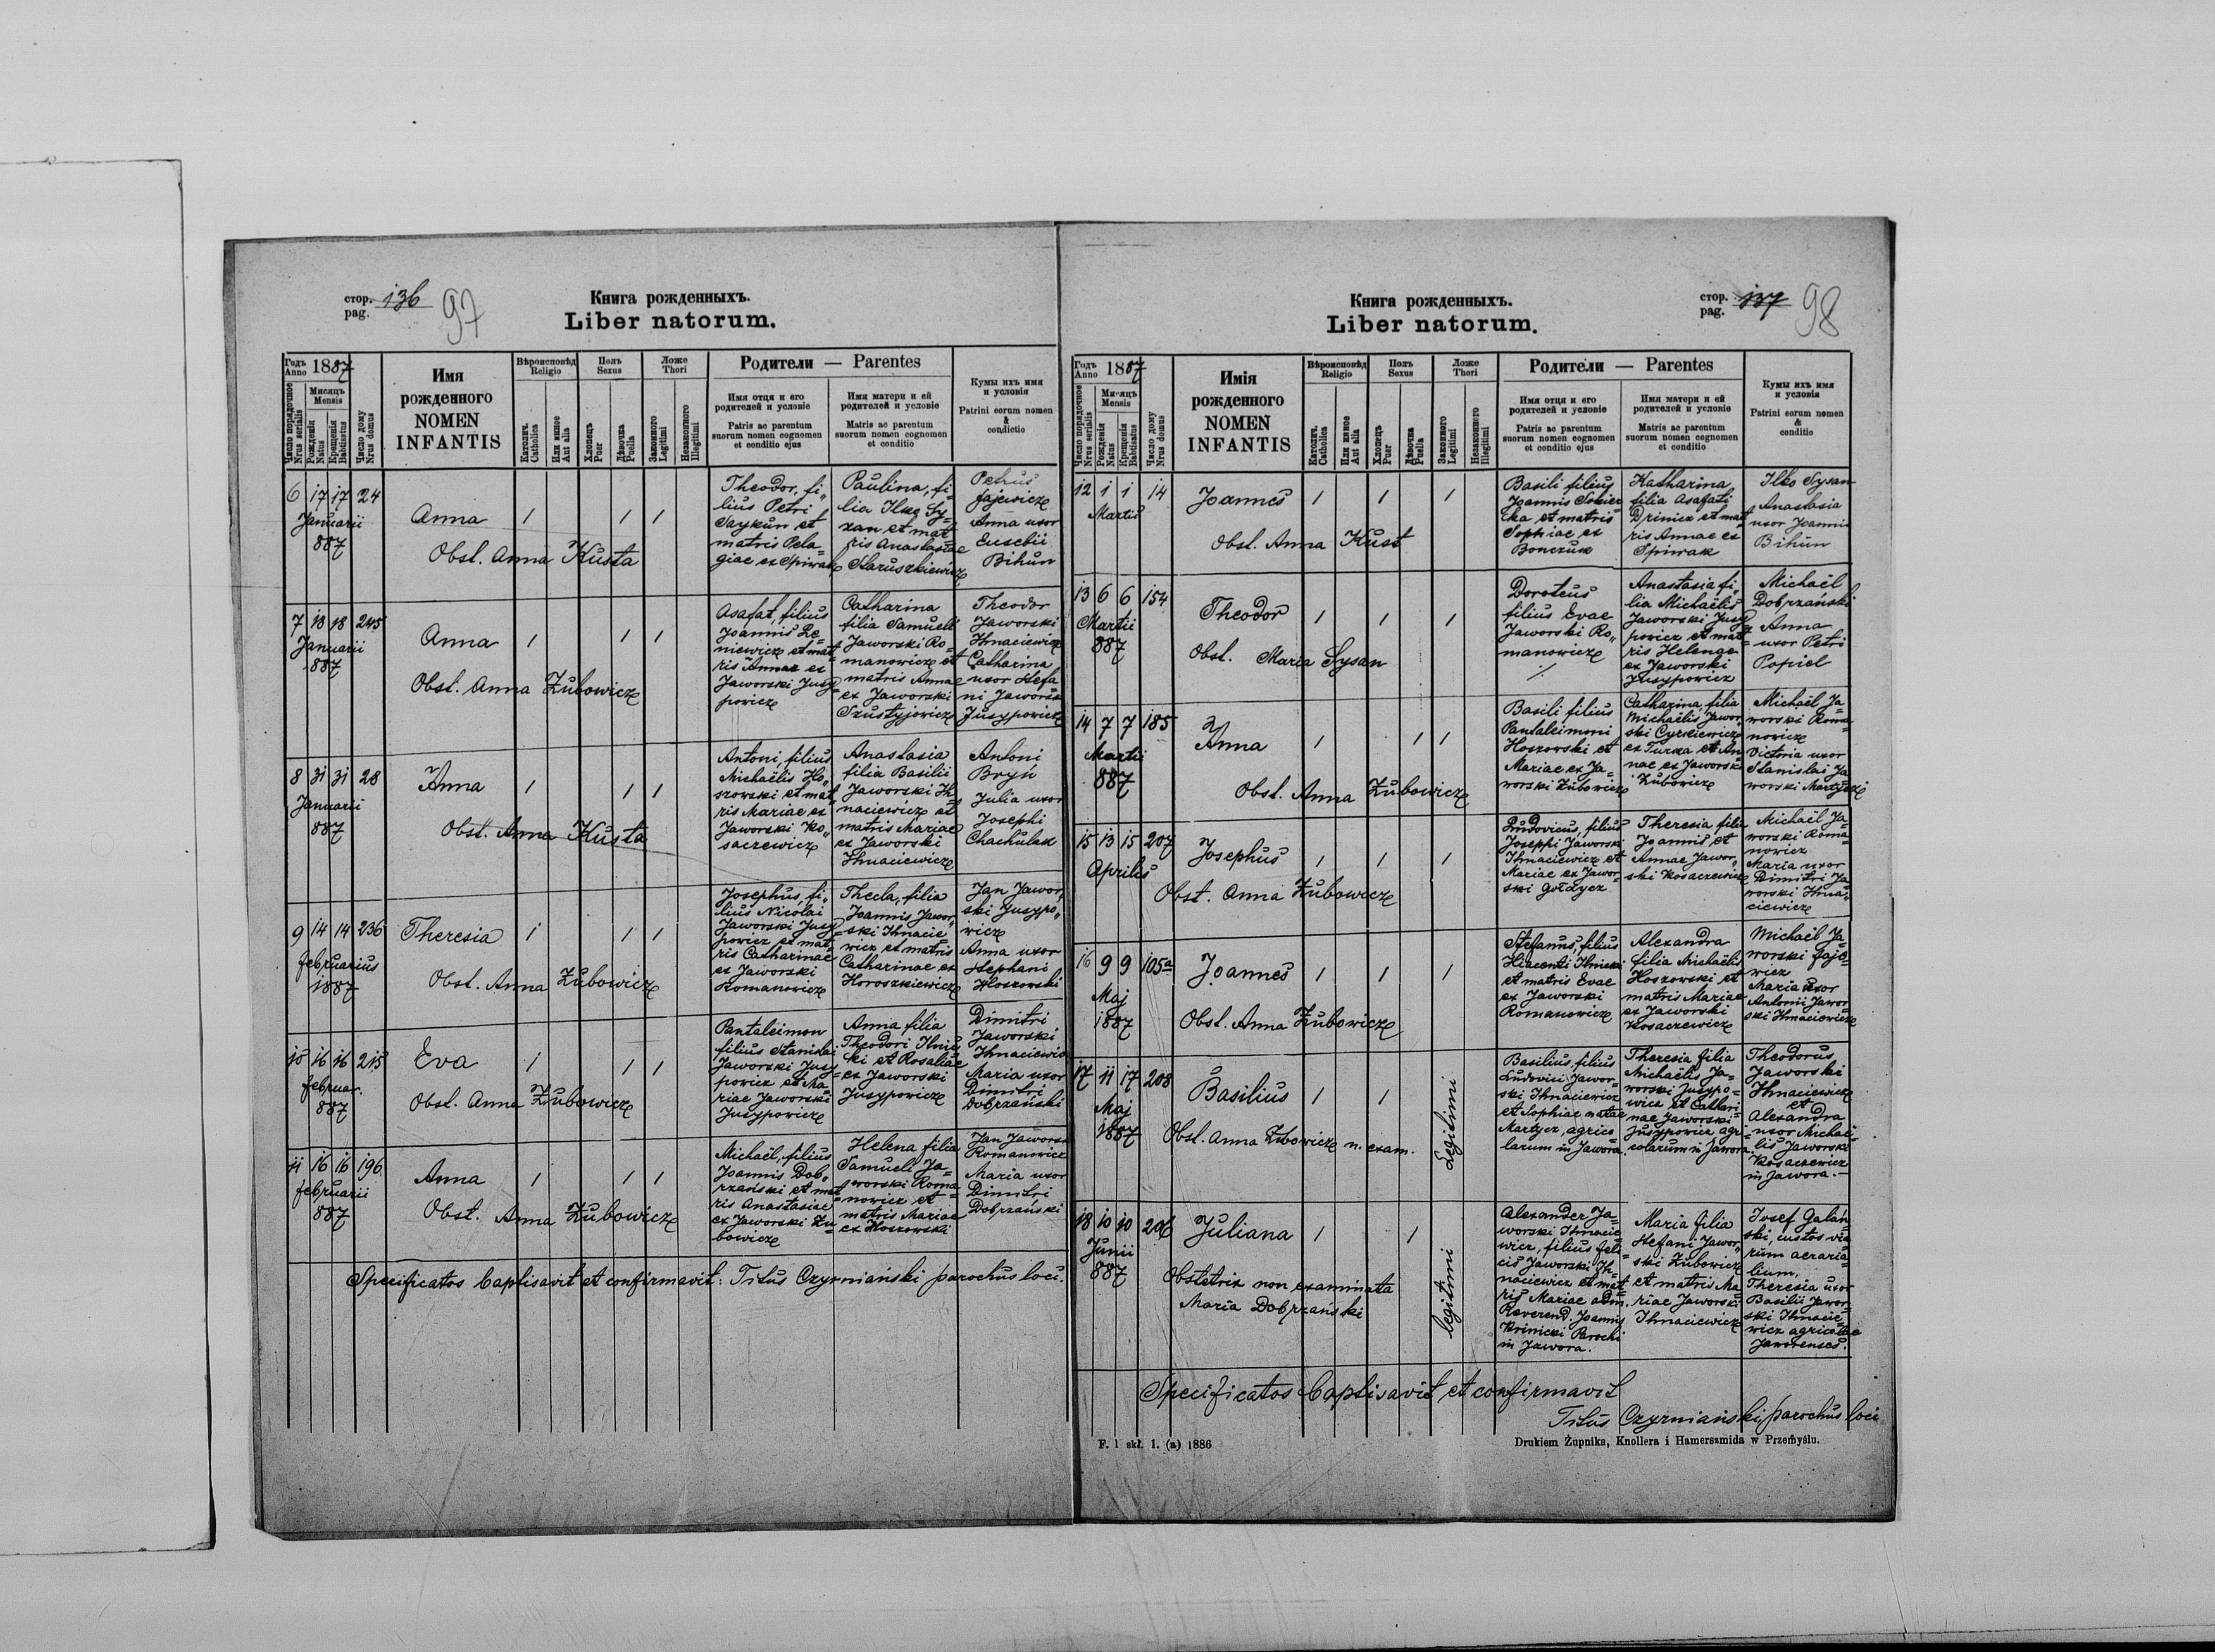 стор. 136 97
pag.
Книга рожденныхъ.
Liber natorum.
Годъ Anno 1887
Мисяцъ Mensis
Число порядочное Nrus serialis
Рожденія Natus
Крещенія Babtisatus
Число дому Nrus domus
Имя рожденного
NOMEN INFANTIS
Вѣроисповѣд Religio
Католич. Catholica
Или иное Aut alia
Полъ Sexus
Хлопець Puer
Дѣвочка Puella
Ложе Thori
Законного Legitimi
Незаконного Illegitimi
Родители — Parentes
Имя отця и его родителей и условіе
Patris ac parentum suorum nomen cognomen et conditio
Имя матери и ей родителей и условіе
Matris ac parentum suorum nomen cognomen et conditio
Кумы ихъ имя и условія
Patrini eorum nomen & condictio
6 17 17 24
Januarii
887
Anna 1 1 1
Obst. Anna Kusta
Theodor, fi„
lius Petri
Saykun et
matris Pela=
giae ex Spiwak
Paulina, fi=
lia Ilko Sy=
xan et mat
ris Anastasiae
Staruszkiewicz
Petrus
Jajewicz
Anna uxor
Eusebii
Bihun
7 18 18 245
Januarii
1887
Anna 1 1 1
Obst. Anna Zubowicz
Asafat, filius
Joannis Le=
niewicz et mat
ris Annae ex
Jaworski Jusy
powicz
Catharina
filia Samueli
Jaworski Ro=
manowicz et
matris Annae
ex Jaworski
Szustyjowicz
Theodor
Jaworski
Ihnaciewicz
Catharina
uxor Stefa
ni Jaworski
Jusypowicz
8 31 31 28
Januarii
887
Anna 1 1 1
Obst. Anna Kusta
Antoni, filius
Michaëlis Ho„
szowski et mat
ris Mariae ex
Jaworski Ko„
saczewicz
Anastasia
filia Basilii
Jaworski Ih
naciewicz et
matris Mariae
ex Jaworski
Ihnaciewicz
Antoni
Bryń
Julia uxor
Josephi
Chachulak
9 14 14 236
februarius
1887
Theresia 1 1 1
Obst. Anna Zubowicz
Josephus, fi„
lius Nicolai
Jaworski Jusy
powicz et mat=
ris Catharinae
ex Jaworski
Romanowicz
Thecla, filia
Joannis Jawor„
ski Ihnacie=
wicz et matris
Catharinae ex
Horoszkiewicz
Jan Jawor„
ski Jusypo„
wicz
Anna uxor
Stephani
Hoszowski
10 16 16 215
februar.
887
Eva 1 1 1
Obst. Anna Zubowicz
Pantaleimon
filius Stanislai
Jaworski Jusy=
powicz et Ma
riae Jaworski
Jusypowicz
Anna filia
Theodori Ilnic
ki et Rosaliae
ex Jaworski
Jusypowicz
Dimitri
Jaworski
Ihnaciewicz
Maria uxor
Dimitri
Dobrzański
11 16 16 196
februarii
887
Anna 1 1 1
Obst. Anna Zubowicz
Michaël, filius
Joannis Dob„
rzański et mat
ris Anastasiae
ex Jaworski Zu
bowicz
Helena filia
Samueli Ja=
worski Roma
nowicz et
matris Mariae
ex Hoszowski
Jan Jaworski
Romanowicz
Maria uxor
Dimitri
Dobrzański
Specificatos baptisavit et confirmavit: Titus Czyrniański parochus loci.
Книга рожденныхъ.
Liber natorum.
стор. 137 98
pag.
Годъ Anno 1887
Мисяцъ Mensis
Число порядочное Nrus serialis
Рожденія Natus
Крещенія Babtisatus
Число дому Nrus domus
Имія рожденного
NOMEN INFANTIS
Вѣроисповѣд Religio
Католич. Catholica
Или иное Aut alia
Полъ Sexus
Хлопець Puer
Дѣвочка Puella
Ложе Thori
Законного Legitimi
Незаконного Illegitimi
Родители — Parentes
Имя отця и его родителей и условіе
Patris ac parentum suorum nomen cognomen et conditio
Имя матери и ей родителей и условіе
Matris ac parentum suorum nomen cognomen et conditio
Кумы ихъ имя и условія
Patrini eorum nomen & conditio
12 1 1 14
Martii
Joannes 1 1 1
Obst. Anna Kust
Basili filius
Joannis
ka et matris
Sophiae ex
Bonczuk
Katharina
filia Asafati
Drinicz et mat
ris Annae ex
Spiwak
Ilko Sysan
Anastasia
uxor Joannis
Bihun
13 6 6 154
Martii
887
Theodor 1 1 1
Obst. Maria Sysan
Doroteus
filius Evae
Jaworski Ro„
manowicz
Anastasia fi„
lia Michaëlis
Jaworski Jusy
powicz et mat=
ris Helenae
ex Jaworski
Jusypowicz
Michaël
Dobrzański
Anna
uxor Petri
Popiel
14 7 7 185
Martii
887
Anna 1 1 1
Obst. Anna Zubowicz
Basili filius
Pantaleimoni
Hoszowski et
Mariae ex Ja=
worski Zubowicz
Catharina, filia
Michaëlis Jawor„
ski Cyrkiewicz
ex Turka et An=
nae ex Jaworski
Zubowicz
Michaël Ja=
worski Roma
nowicz
Victoria uxor
Stanislai Ja
worski Martycz
15 13 15 207
Aprilis
Josephus 1 1 1
Obst. Anna Zubowicz
Ludovicus, filius
Josephi Jaworski
Ihnaciewicz et
Mariae ex Jawor=
ski Gołdycz
Theresia filia
Joannis et
Annae Jawor„
ski Kosaczewicz
Michaël Ja=
worski Roma=
nowicz
Maria uxor
Dimitri Ja
worski Ihna=
ciewicz
16 9 9 105a
Maj
1887
Joannes 1 1 1
Obst. Anna Zubowicz
Stefanus, filius
Hiacenti Ilnicki
et matris Evae
ex Jaworski
Romanowicz
Alexandra
filia Michaëlis
Hoszowski et
matris Mariae
ex Jaworski
Kosaczewicz
Michaël Ja=
worski Faje=
wicz
Maria uxor
Antonii Jawor
ski Ihnaciewicz
17 11 17 208
Maj
1887
Basilius 1 1 Legitimi
Obst. Anna Zubowicz n. exam.
Basilius, filius
Ludovici Jawor=
ski Ihnaciewicz
et Sophiae natae
Martycz, agrico
larum in Jawora.
Theresia filia
Michaëlis Ja=
worski Jusypo=
wicz et Cathari=
nae Jaworski
Jusypowicz agri=
colarum in Jawora.
Theodorus
Jaworski
Ihnaciewicz
et
Alexandra
uxor Michaë=
lis Jaworski
Kosaczewicz
in Jawora.—
18 10 10 206
Junii
887
Juliana 1 1 legitimi
Obstetrix non examinata
Maria Dobrzański
Alexander Ja=
worski Ihnacie=
wicz, filius Feli=
cis Jaworski Ih=
naciewicz et mat
ris Mariae adm.
Reverend. Joannis
Krinicki Parochi
in Jawora.
Maria filia
Stefani Jawor„
ski Zubowicz
et matris Ma=
riae Jaworski
Ihnaciewicz
Josef Galań=
ski, custos via
rum aeraria=
lium,
Theresia uxor
Basilii Jawor=
ski Ihnacie=
wicz agricolae
Jaworenses.
Specificatos baptisavit et confirmavit
Titus Czyrniański, parochus loci
F. 1 skł. 1. (a) 1886
Drukiem Żupnika, Knollera i Hamerszmida w Przemyślu.